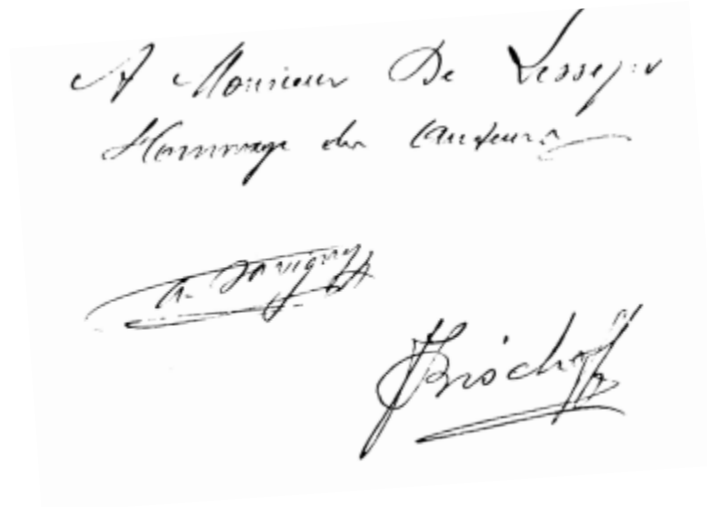 A Monsieur De Lesseps
Hommage du
A. Savigny
Bischoff